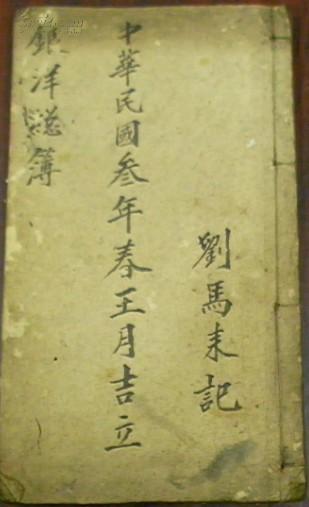 劉馬来記
中華民國叁年春王月吉立
銀洋總簿